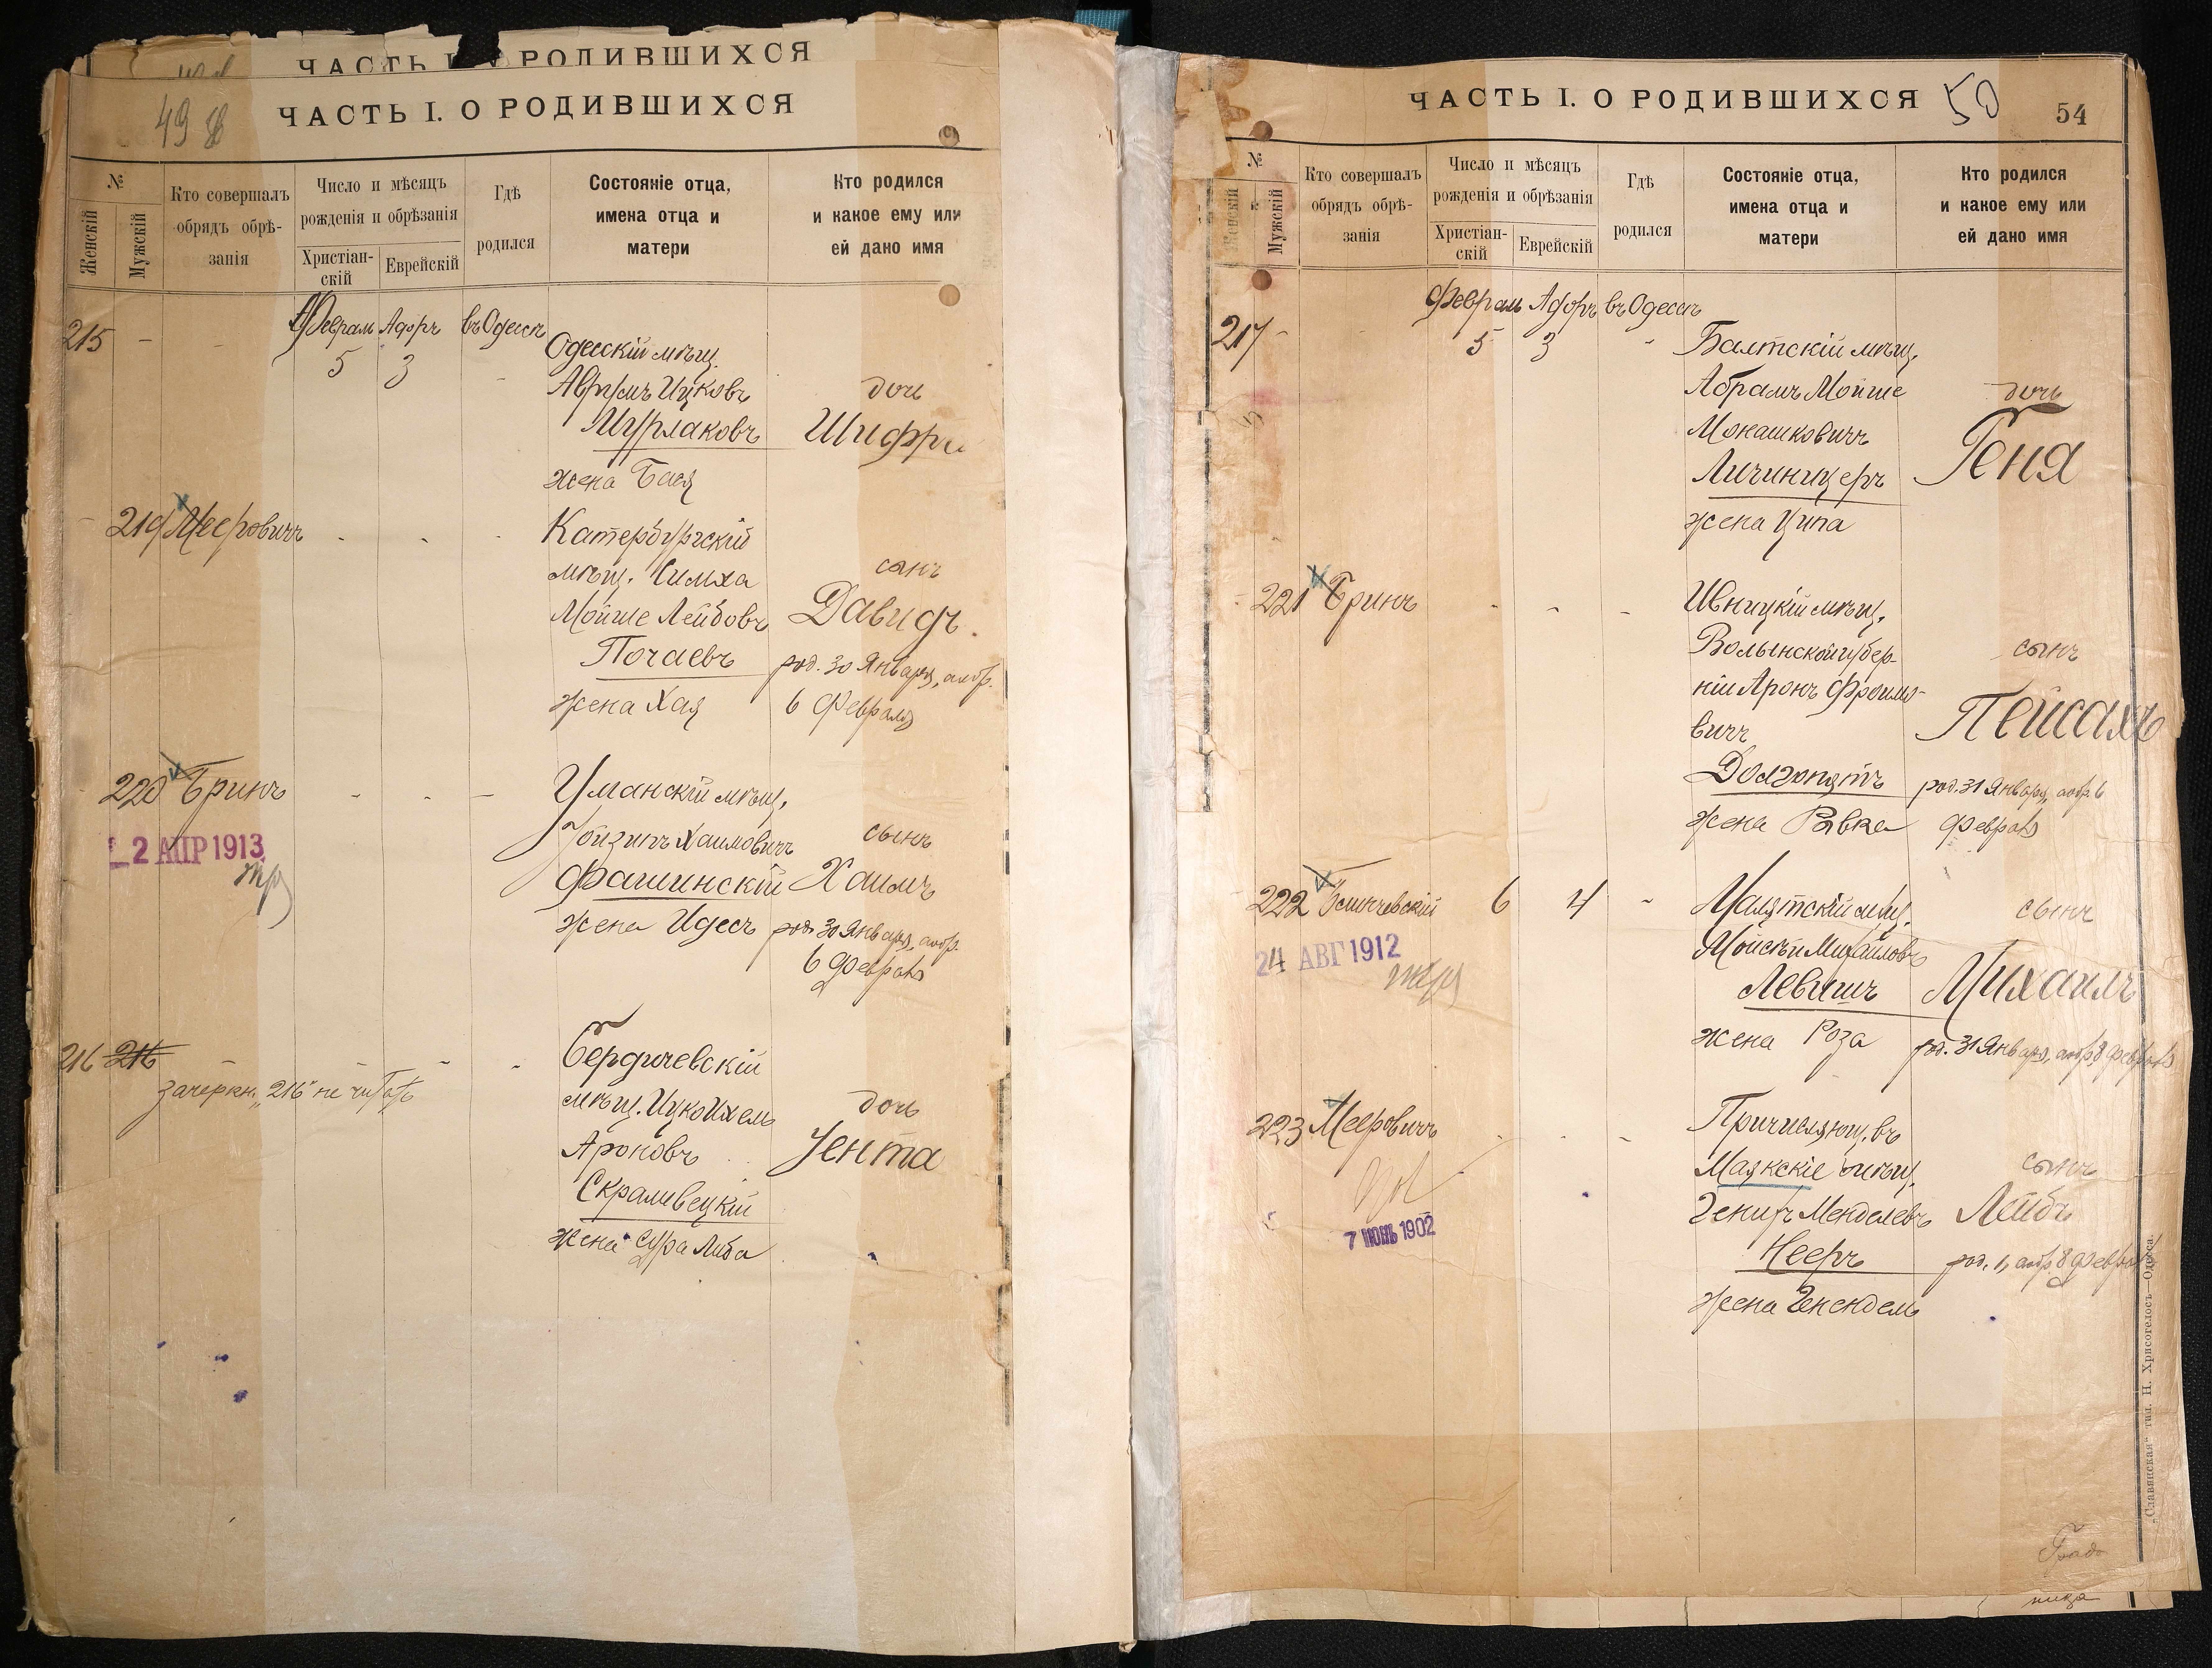 ЧАСТЬ I. О РОДИВШИХСЯ
49
ЧАСТЬ I. О РОДИВШИХСЯ
№
Женскій
Мужскій
Кто совершалъ
обрядъ обрѣ-
занія
Число и мѣсяцъ
рожденія и обрѣзанія
Христіан-
скій
Еврейскій
Гдѣ
родился
Состояніе отца,
имена отца и
матери
Кто родился
и какое ему или
ей дано имя
Февраль Адоръ въ Одессѣ
215 - - 5 3 -
Одесскій мѣщ.
Аврумъ Ицковъ
Мурлаковъ
жена Бася
дочь
Шифра
219 Мееровичъ - - -
Катербургскій
мѣщ. Симха
Мойше Лейбовъ
Почаевъ
жена Хая
сынъ
Давидъ.
род. 30 Января, аобр.
6 Февраля
220 Бринъ - - -
2 АПР 1913
Уманскій мѣщ.
Хаимовичъ
Фашинскій
жена Идесъ
сынъ
Хаимъ
род. 30 Января, аобр.
6 Февраля
216 216 - - - -
зачеркн. „216" не читать
Бердичевскій
мѣщ. Ицко Ихель
Ароновъ
Скраливецкій
жена Сура Либа
дочь
Іента
ЧАСТЬ I. О РОДИВШИХСЯ
50
54
№
Женскій
Мужскій
Кто совершалъ
обрядъ обрѣ-
занія
Число и мѣсяцъ
рожденія и обрѣзанія
Христіан-
скій
Еврейскій
Гдѣ
родился
Состояніе отца,
имена отца и
матери
Кто родился
и какое ему или
ей дано имя
Февраль Адоръ въ Одессѣ
217 - - 5 3 -
Балтскій мѣщ.
Абрамъ Мойше
Монашковичъ
Личиницеръ
жена Ципа
дочь
Геня
221 Бринъ - - -
Ивницкій мѣщ.
Волынской губер-
ніи Аронъ Фроимо-
вичъ
Долгопятъ
жена Ривка
сынъ
Пейсахъ
род. 31 Января, аобр. 6
Февраля
222 6 4 -
24 АВГ 1912
Маятскій мѣщ.
Мойсѣй Михайловъ
Левитъ
жена Роза
сынъ
Михаилъ
род. 31 Января, аобр. 8 Февраля
223 Мееровичъ - - -
7 1902
Причисляющ. въ
Маякскіе мѣщ.
Генихъ Менделевъ
Нееръ
жена Генендель
сынъ
Лейбъ
род. 1, аобр. 8 Февраля
„Славянская" тип. Н. Хрисогелосъ—Одесса.